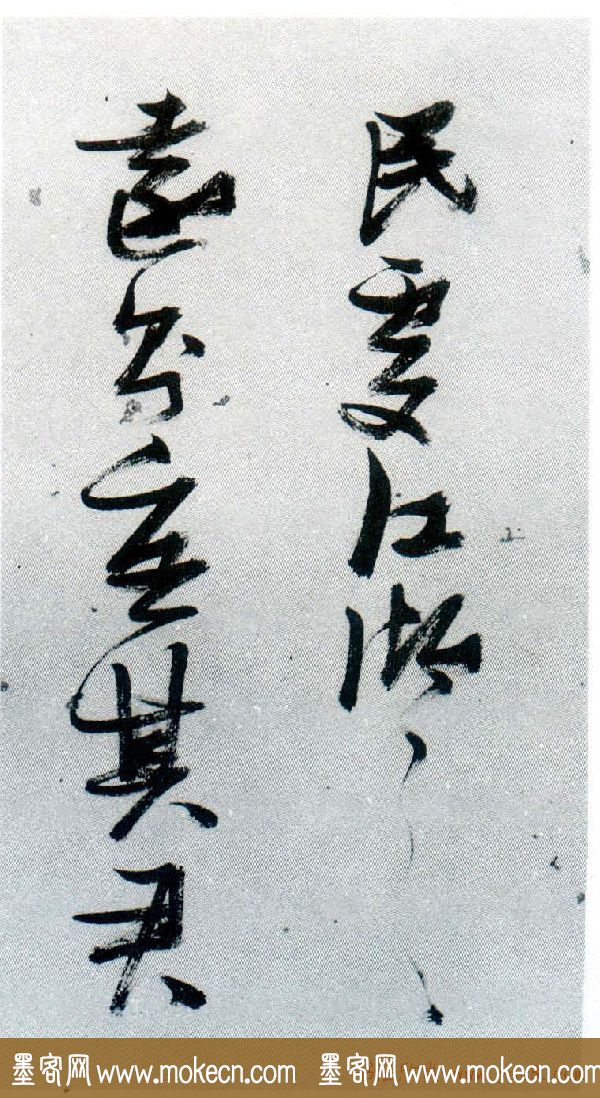 民處江湖之
遠則憂其君
墨客网 www.mokecn.com 墨客网 www.mokecn.com